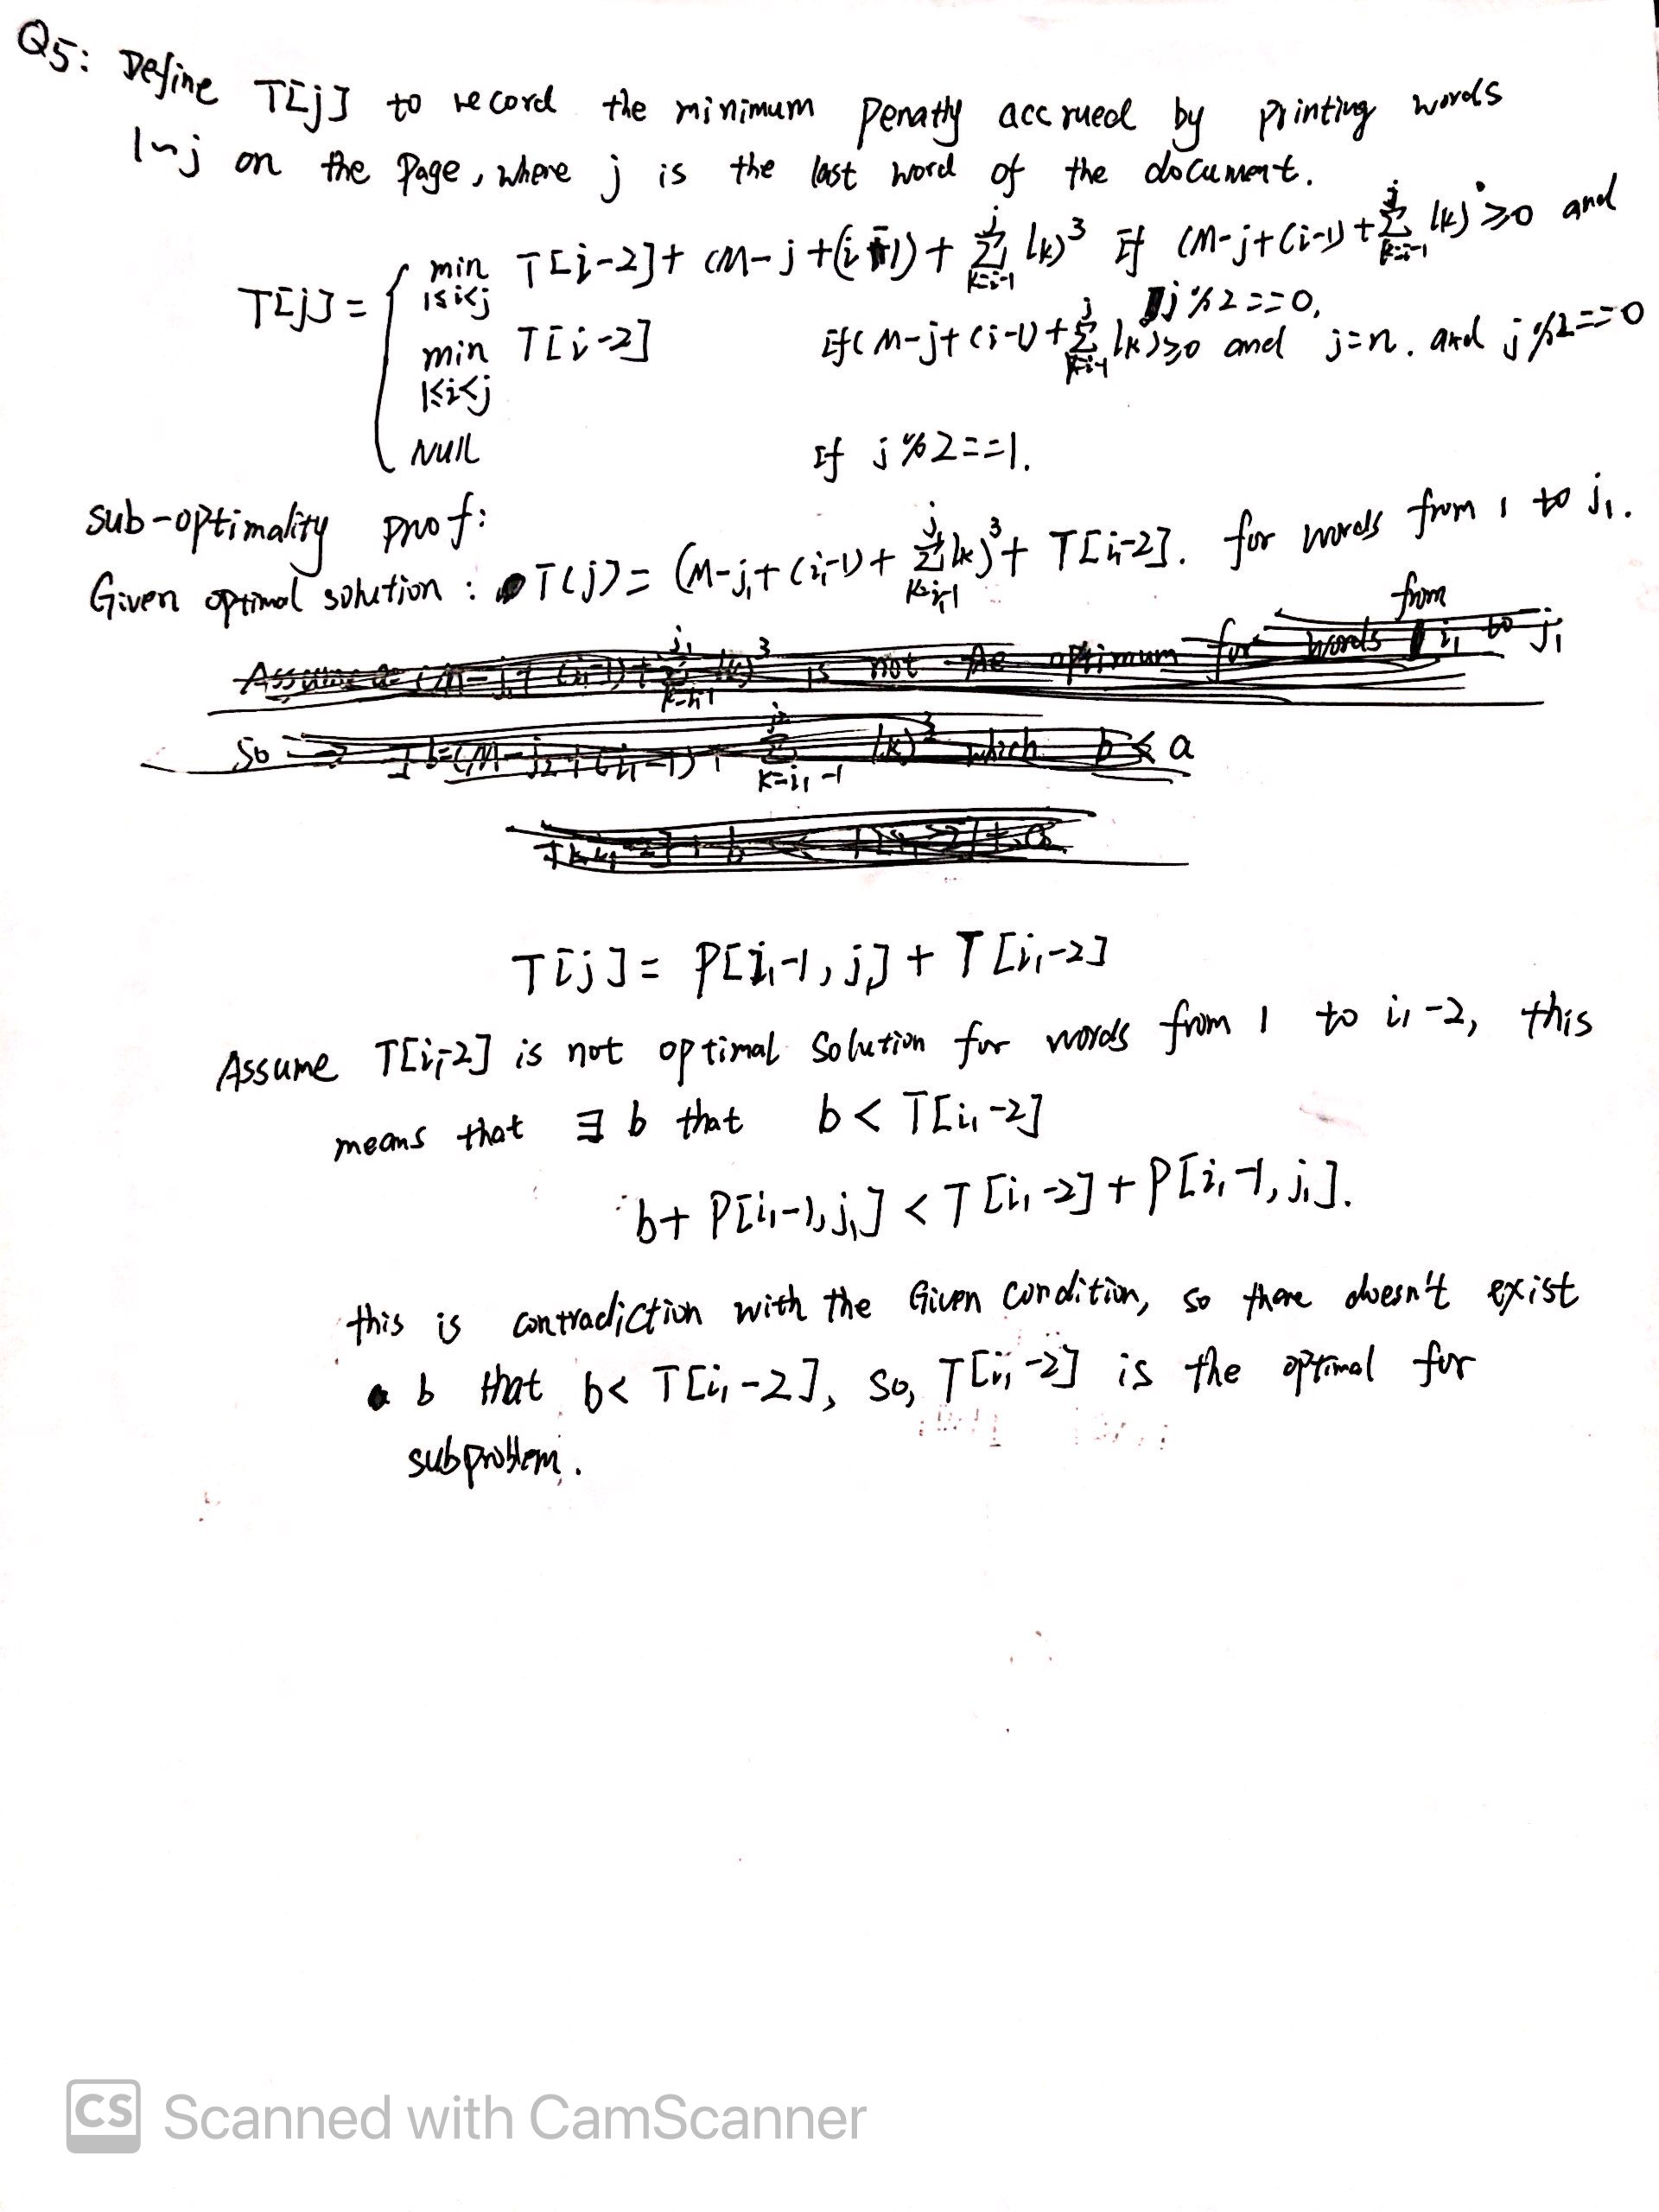 Q5: Define T[j] to record the minimum Penatly accrued by printing words
1~j on the page, where j is the last word of the document.
T[j] = { min 1≤i<j T[i-2] + (M-j+(i-1) + Σ_{k=i-1}^{j} lk)^3 If (M-j+(i-1) + Σ_{k=i-1}^{j} lk) ≥0 and j%2==0,
min 1≤i<j T[i-2] If (M-j+(i-1) + Σ_{k=i-1}^{j} lk) ≥0 and j=n. and j%2==0
NUll If j%2==1.
sub-optimality proof:
Given optimal solution : T(j) = (M-j₁+(i₁-1) + Σ_{k=i₁-1}^{j₁} lk)^3 + T[i₁-2]. for words from 1 to j₁.
from
Assume (M-j₁+(i₁-1)+Σ_{k=i₁-1}^{j₁} lk)^3 is not the optimum for words i₁ to j₁
So b=(M-j₂+(i₁-1)+Σ_{k=i₁-1} lk)^3 which b< a
T[j] = P[i₁-1, j₁] + T[i₁-2]
Assume T[i₁-2] is not optimal solution for words from 1 to i₁-2, this
means that ∃ b that b< T[i₁-2]
b+ P[i₁-1, j₁] < T[i₁-2] + P[i₁-1, j₁].
this is contradiction with the Given condition, so there doesn't exist
b that b< T[i₁-2], so, T[i₁-2] is the optimal for
subproblem.
CS Scanned with CamScanner